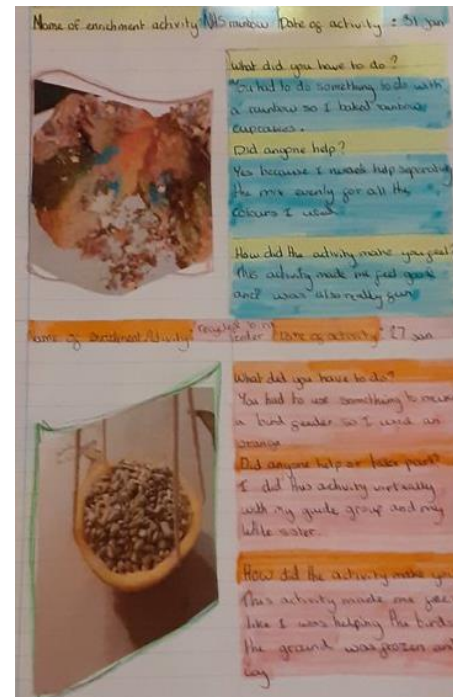 Name of enrichment activity NHS rainbow Date of activity : 31 jan
What did you have to do ?
You had to do something to do with
a rainbow so I baked rainbow
cupcakes.
Did anyone help?
Yes because I needed help separating
the mix evenly for all the
colours I used
How did the activity make you feel?
This activity made me feel good
and was also really fun
Name of enrichment Activity: recycled bird
feeder Date of activity : 27 jan
What did you have to do?
You had to use something to make
a bird feeder so I used an
orange
Did anyone help or take part?
I did this activity virtually
with my guide group and my
little sister.
How did the activity make you
This activity made me feel
like I was helping the birds
the ground was frozen and
icy